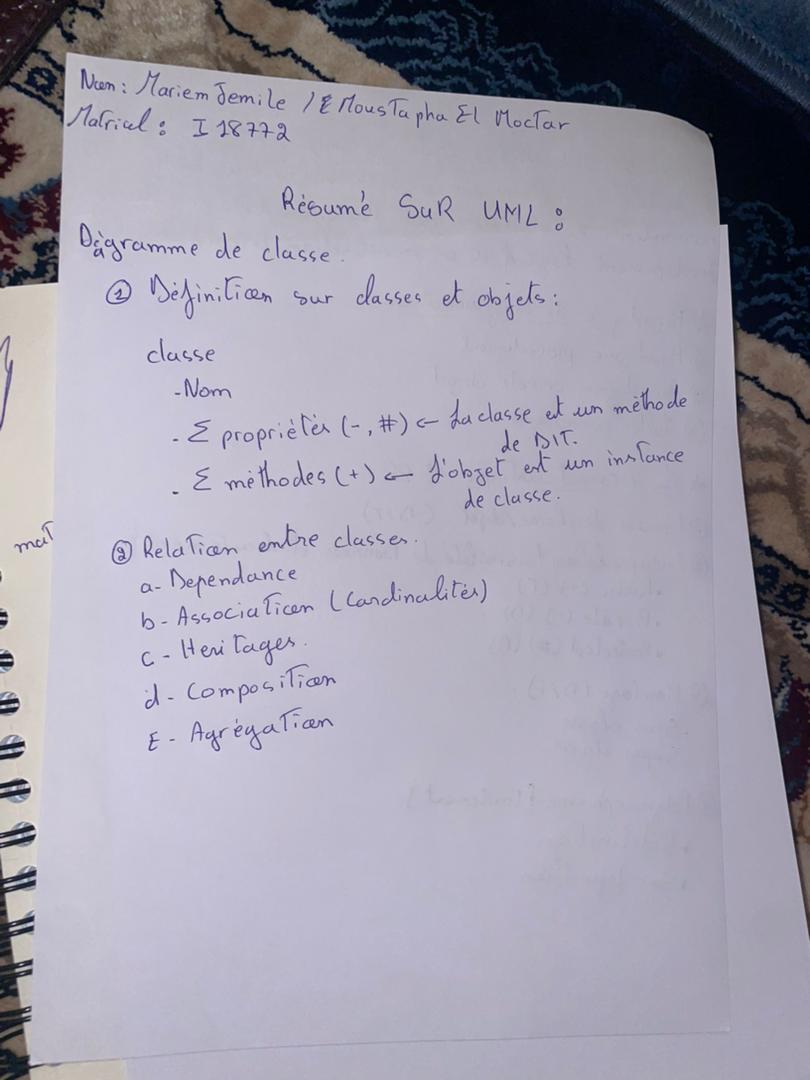 Nom : Mariem Jemile / E Moustapha El Moctar
Matricul : I 18772
Résumé SuR UML :
Diagramme de classe.
① Définition sur classes et objets :
classe
- Nom
. Σ propriétés (-, #) ← La classe est un méthode
de DIT.
. Σ méthodes (+) ← L'objet est un instance
de classe.
② Relation entre classes.
a- Dependance
b- Association (Cardinalités)
c- Heritages.
d- Composition
E- Agrégation
mat